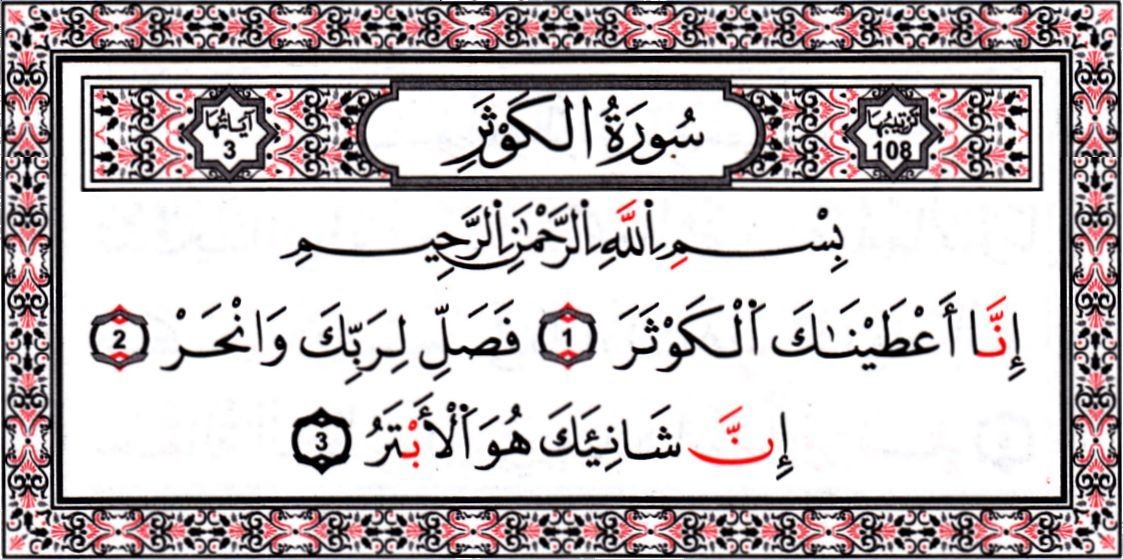 ترتيبها 108
سُورَةُ الكَوْثَرِ
آياتها 3
بِسْمِ ٱللَّهِ ٱلرَّحْمَٰنِ ٱلرَّحِيمِ
إِنَّا أَعْطَيْنَٰكَ ٱلْكَوْثَرَ 1 فَصَلِّ لِرَبِّكَ وَانْحَرْ 2
إِنَّ شَانِئَكَ هُوَ ٱلْأَبْتَرُ 3